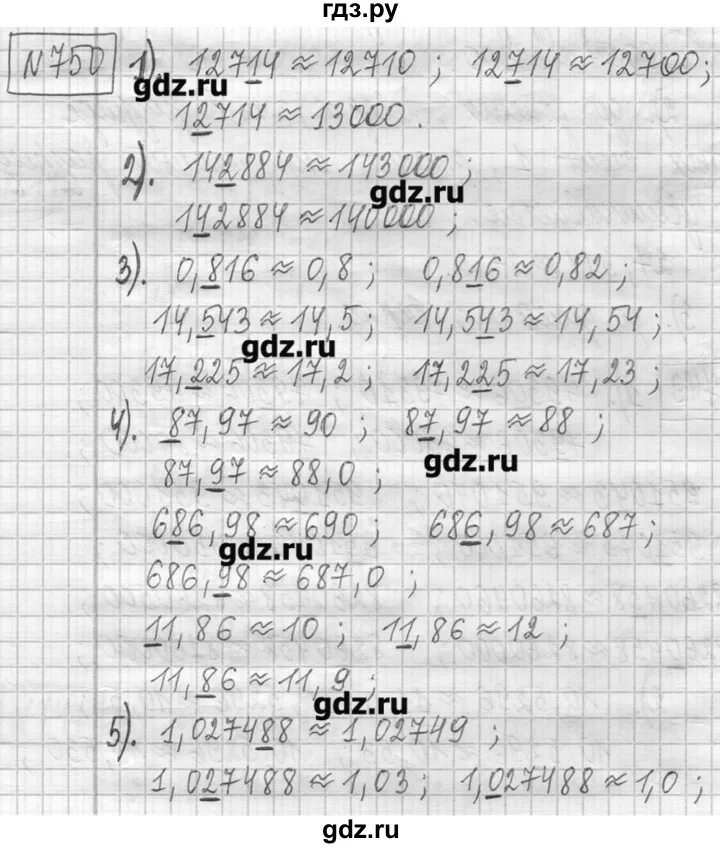 гдз.ру
№750 1) 12714 ≈ 12710 ; 12714 ≈ 12700;
gdz.ru
12714 ≈ 13000 .
2). 142884 ≈ 143000 ;
gdz.ru
142884 ≈ 140000 ;
3). 0,816 ≈ 0,8 ; 0,816 ≈ 0,82 ;
14,543 ≈ 14,5 ; 14,543 ≈ 14,54 ;
gdz.ru
17,225 ≈ 17,2 ; 17,225 ≈ 17,23 ;
4). 87,97 ≈ 90 ; 87,97 ≈ 88 ;
gdz.ru
87,97 ≈ 88,0 ;
686,98 ≈ 690 ; 686,98 ≈ 687 ;
gdz.ru
686,98 ≈ 687,0 ;
11,86 ≈ 10 ; 11,86 ≈ 12 ;
11,86 ≈ 11,9 ;
gdz.ru
5). 1,027488 ≈ 1,02749 ;
1,027488 ≈ 1,03 ; 1,027488 ≈ 1,0 ;
gdz.ru